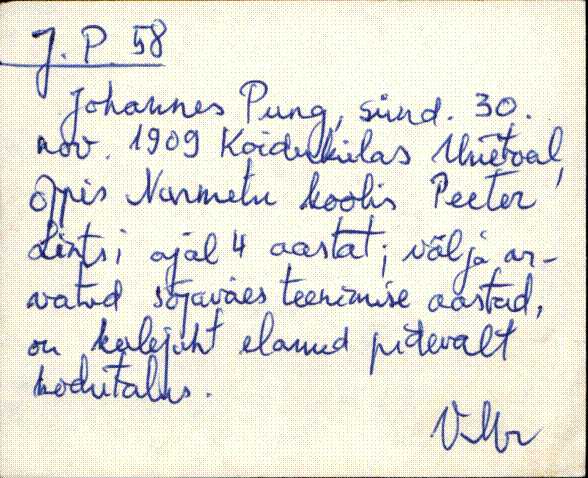 J. P. 58
Johannes Pung, sünd. 30.
nov. 1909 Koidukülas Uuetoal,
õppis Nurmetu koolis Peeter
Lintsi ajal 4 aastat; välja ar-
vatud sõjaväes teenimise aastad,
on kalejuht elanud pidevalt
kodutalus.